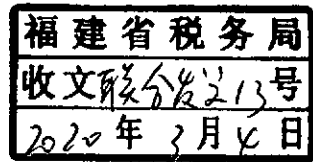 福建省税务局
收文联合发文13号
2020年3月4日